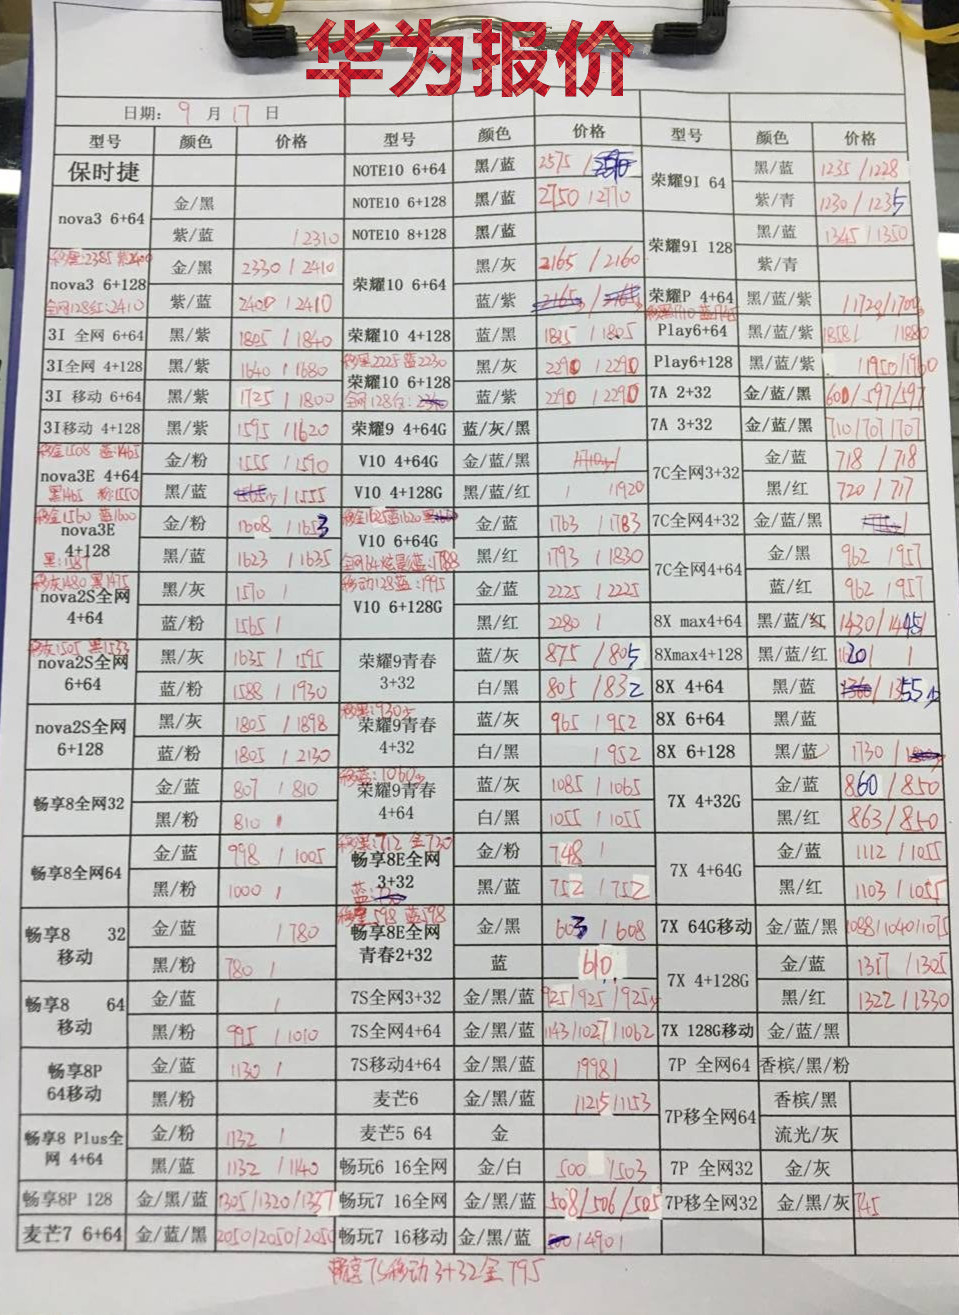 华为报价
日期： 9 月 17 日
型号 颜色 价格 型号 颜色 价格 型号 颜色 价格
保时捷 NOTE10 6+64 黑/蓝 2575 / 荣耀9I 64 黑/蓝 1235 /1228
nova3 6+64 金/黑 NOTE10 6+128 黑/蓝 2750 /2770 紫/青 1230 /1235
紫/蓝 / 2310 NOTE10 8+128 黑/蓝 荣耀9I 128 黑/蓝 1345 /1350
移黑:2385 紫2400
nova3 6+128 金/黑 2330 / 2410 荣耀10 6+64 黑/灰 2165 / 2160 紫/青
全网128红:2410 紫/蓝 2400 / 2410 蓝/紫 2165 / 2165 荣耀P 4+64 黑/蓝/紫 /1720/1700
3I 全网 6+64 黑/紫 1805 / 1840 荣耀10 4+128 蓝/黑 1815 / 1805 Play6+64 黑/蓝/紫 1858/ /1880
移黑2225 蓝2230
3I全网 4+128 黑/紫 1640 / 1680 荣耀10 6+128 黑/灰 2290 / 2290 Play6+128 黑/蓝/紫 /1950/1960
3I 移动 6+64 黑/紫 1725 / 1800 蓝/紫 2290 / 2290 7A 2+32 金/蓝/黑 600/597/597
3I移动 4+128 黑/紫 1595 /1620 荣耀9 4+64G 蓝/灰/黑 7A 3+32 金/蓝/黑 710/707/707
移金1508 蓝1465
nova3E 4+64 金/粉 1555 / 1590 V10 4+64G 金/蓝/黑 7C全网3+32 金/蓝 718 / 718
黑1465 粉:1550 黑/蓝 / 1555 V10 4+128G 黑/蓝/红 / 11920 黑/红 720 / 717
移金1560 蓝1600 移金1625蓝1620
nova3E 4+128 金/粉 1608 / 1653 V10 6+64G 金/蓝 1763 / 1783 7C全网4+32 金/蓝/黑
黑:1587 黑/蓝 1623 / 1635 全网64炫影蓝:1788 黑/红 1793 / 1830 7C全网4+64 金/黑 962 / 957
移灰1480 黑1475 移动128蓝:1995
nova2S全网 4+64 黑/灰 1570 / V10 6+128G 金/蓝 2225 / 2225 蓝/红 962 / 957
蓝/粉 1565 / 黑/红 2280 / 8X max4+64 黑/蓝/红 1430/1445/
移灰1505 黑1533
nova2S全网 6+64 黑/灰 1635 / 1595 荣耀9青春 3+32 蓝/灰 875 / 805 8Xmax4+128 黑/蓝/红 1620/ /
蓝/粉 1588 / 1930 白/黑 805 /832 8X 4+64 黑/蓝 1360/1355少
移黑:930少
nova2S全网 6+128 黑/灰 1805 / 1898 荣耀9青春 4+32 蓝/灰 965 / 952 8X 6+64 黑/蓝
蓝/粉 1805 / 2130 白/黑 / 952 8X 6+128 黑/蓝 1730 /
移蓝:1060少
畅享8全网32 金/蓝 807 / 810 荣耀9青春 4+64 蓝/灰 1085 / 1065 7X 4+32G 金/蓝 860 / 850
黑/粉 810 / 白/黑 1055 / 1055 黑/红 863/ 850
移黑:712 金730
畅享8全网64 金/蓝 998 / 1005 畅享8E全网 3+32 金/粉 748 / 7X 4+64G 金/蓝 1112 / 1055
黑/粉 1000 / 黑/蓝 752 / 752 黑/红 1103 / 1055
移黑598 蓝598
畅享8 32 移动 金/蓝 / 780 畅享8E全网 青春2+32 金/黑 603 / 608 7X 64G移动 金/蓝/黑 1088/1040/1075
黑/粉 780 / 蓝 610 7X 4+128G 金/蓝 1317 / 1305
畅享8 64 移动 金/蓝 / 7S全网3+32 金/黑/蓝 925/925 /925少 黑/红 1322 / 1330
黑/粉 995 / 1010 7S全网4+64 金/黑/蓝 1143/1027/1062 7X 128G移动 金/蓝/黑
畅享8P 64移动 金/蓝 1130 / 7S移动4+64 金/黑/蓝 1998/ 7P 全网64 香槟/黑/粉
黑/粉 麦芒6 金/黑/蓝 /1215/1153 7P移全网64 香槟/黑
畅享8 Plus全网 4+64 金/粉 1132 / 麦芒5 64 金 流光/灰
黑/蓝 1132 / 1140 畅玩6 16全网 金/白 500 /503 7P 全网32 金/灰
畅享8P 128 金/黑/蓝 1305/1320/1337 畅玩7 16全网 金/黑/蓝 508/506/505 7P移全网32 金/黑/灰 745
麦芒7 6+64 金/蓝/黑 2050/2050/2050 畅玩7 16移动 金/黑/蓝 /490/
畅享7S移动3+32金 795